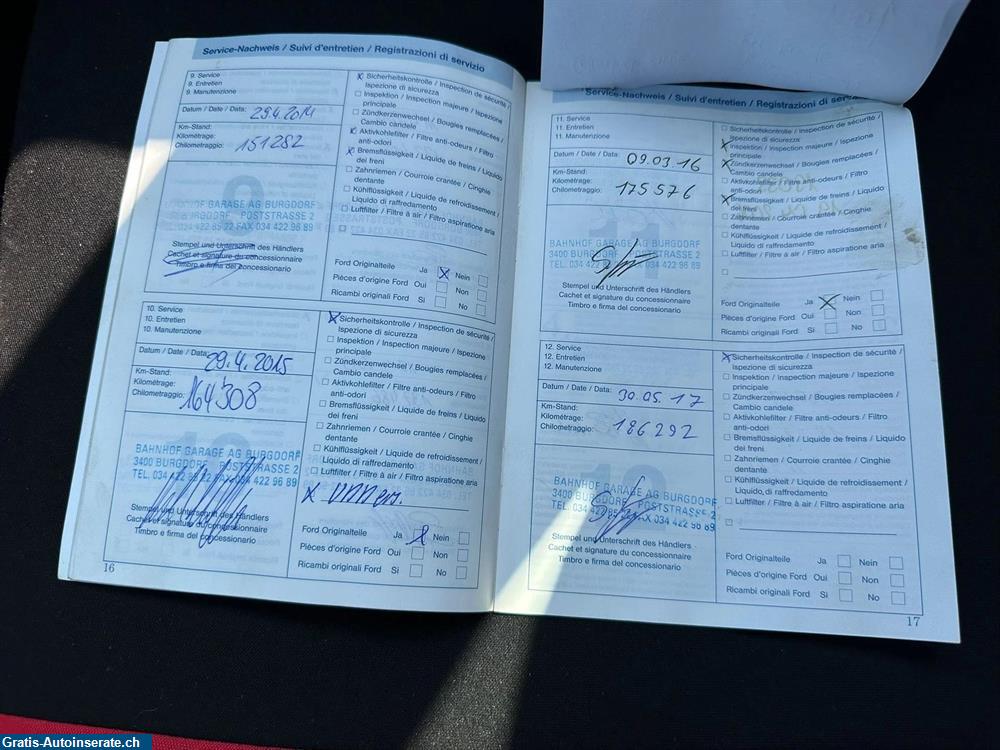 Service-Nachweis / Suivi d'entretien / Registrazioni di servizio
9. Service
9. Entretien
9. Manutenzione
Datum / Date / Data: 29.4.2014
Km-Stand:
Kilométrage:
Chilometraggio: 151282
BAHNHOF GARAGE AG BURGDORF
3400 BURGDORF POSTSTRASSE 2
TEL. 034 422 89 22 FAX 034 422 96 89
Stempel und Unterschrift des Händlers
Cachet et signature du concessionnaire
Timbro e firma del concessionario
Sicherheitskontrolle / Inspection de sécurité /
Ispezione di sicurezza
Inspektion / Inspection majeure / Ispezione
principale
Zündkerzenwechsel / Bougies remplacées /
Cambio candele
Aktivkohlefilter / Filtre anti-odeurs / Filtro
anti-odori
Bremsflüssigkeit / Liquide de freins / Liquido
dei freni
Zahnriemen / Courroie crantée / Cinghie
dentante
Kühlflüssigkeit / Liquide de refroidissement /
Liquido di raffredamento
Luftfilter / Filtre à air / Filtro aspiratione aria
Ford Originalteile Ja X Nein
Pièces d'origine Ford Oui Non
Ricambi originali Ford Si No
10. Service
10. Entretien
10. Manutenzione
Datum / Date / Data: 29.4.2015
Km-Stand:
Kilométrage:
Chilometraggio: 164308
BAHNHOF GARAGE AG BURGDORF
3400 BURGDORF POSTSTRASSE 2
TEL. 034 422 89 22 FAX 034 422 96 89
Stempel und Unterschrift des Händlers
Cachet et signature du concessionnaire
Timbro e firma del concessionario
Sicherheitskontrolle / Inspection de sécurité /
Ispezione di sicurezza
Inspektion / Inspection majeure / Ispezione
principale
Zündkerzenwechsel / Bougies remplacées /
Cambio candele
Aktivkohlefilter / Filtre anti-odeurs / Filtro
anti-odori
Bremsflüssigkeit / Liquide de freins / Liquido
dei freni
Zahnriemen / Courroie crantée / Cinghie
dentante
Kühlflüssigkeit / Liquide de refroidissement /
Liquido di raffredamento
Luftfilter / Filtre à air / Filtro aspiratione aria
Ford Originalteile Ja Nein
Pièces d'origine Ford Oui Non
Ricambi originali Ford Si No
16
Service-Nachweis / Suivi d'entretien / Registrazioni di
11. Service
11. Entretien
11. Manutenzione
Datum / Date / Data: 09.03.16
Km-Stand:
Kilométrage:
Chilometraggio: 175576
BAHNHOF GARAGE AG BURGDORF
3400 BURGDORF POSTSTRASSE 2
TEL. 034 422 89 22 FAX 034 422 96 89
Stempel und Unterschrift des Händlers
Cachet et signature du concessionnaire
Timbro e firma del concessionario
Sicherheitskontrolle / Inspection de sécurité /
Ispezione di sicurezza
Inspektion / Inspection majeure / Ispezione
principale
Zündkerzenwechsel / Bougies remplacées /
Cambio candele
Aktivkohlefilter / Filtre anti-odeurs / Filtro
anti-odori
Bremsflüssigkeit / Liquide de freins / Liquido
dei freni
Zahnriemen / Courroie crantée / Cinghie
dentante
Kühlflüssigkeit / Liquide de refroidissement /
Liquido di raffredamento
Luftfilter / Filtre à air / Filtro aspiratione aria
Ford Originalteile Ja X Nein
Pièces d'origine Ford Oui Non
Ricambi originali Ford Si No
12. Service
12. Entretien
12. Manutenzione
Datum / Date / Data: 30.05.17
Km-Stand:
Kilométrage:
Chilometraggio: 186292
BAHNHOF GARAGE AG BURGDORF
3400 BURGDORF POSTSTRASSE 2
TEL. 034 422 89 22 FAX 034 422 96 89
Stempel und Unterschrift des Händlers
Cachet et signature du concessionnaire
Timbro e firma del concessionario
Sicherheitskontrolle / Inspection de sécurité /
Ispezione di sicurezza
Inspektion / Inspection majeure / Ispezione
principale
Zündkerzenwechsel / Bougies remplacées /
Cambio candele
Aktivkohlefilter / Filtre anti-odeurs / Filtro
anti-odori
Bremsflüssigkeit / Liquide de freins / Liquido
dei freni
Zahnriemen / Courroie crantée / Cinghie
dentante
Kühlflüssigkeit / Liquide de refroidissement /
Liquido di raffredamento
Luftfilter / Filtre à air / Filtro aspiratione aria
Ford Originalteile Ja Nein
Pièces d'origine Ford Oui Non
Ricambi originali Ford Si No
17
Gratis-Autoinserate.ch